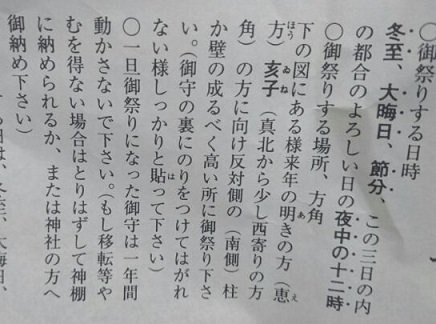 〇御祭りする日時
冬至、大晦日、節分、この三日の内
の都合のよろしい日の夜中の十二時
〇御祭りする場所、方角
下の図にある様来年の明きの方（恵
方）亥子（真北から少し西寄りの方
角）の方に向け反対側の（南側）柱
か壁の成るべく高い所に御祭り下さ
い。（御守の裏にのりをつけてはがれ
ない様しっかりと貼って下さい）
〇一旦御祭りになった御守は一年間
動かさないで下さい。（もし移転等や
むを得ない場合はとりはずして神棚
に納められるか、または神社の方へ
御納め下さい）